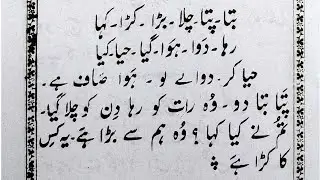 بتا۔ پتا۔ چلا۔ بڑا۔ کڑا۔ کہا
رہا۔ دوا۔ ہوا۔ گیا۔ حیا۔ کیا
حیا کر۔ دوا لے لو۔ ہوا صاف ہے۔
پتا بتا دو۔ وہ رات کو رہا دن کو چلا گیا۔
تم نے کیا کہا؟ وہ ہم سے بڑا ہے۔ یہ کس
کا کڑا ہے